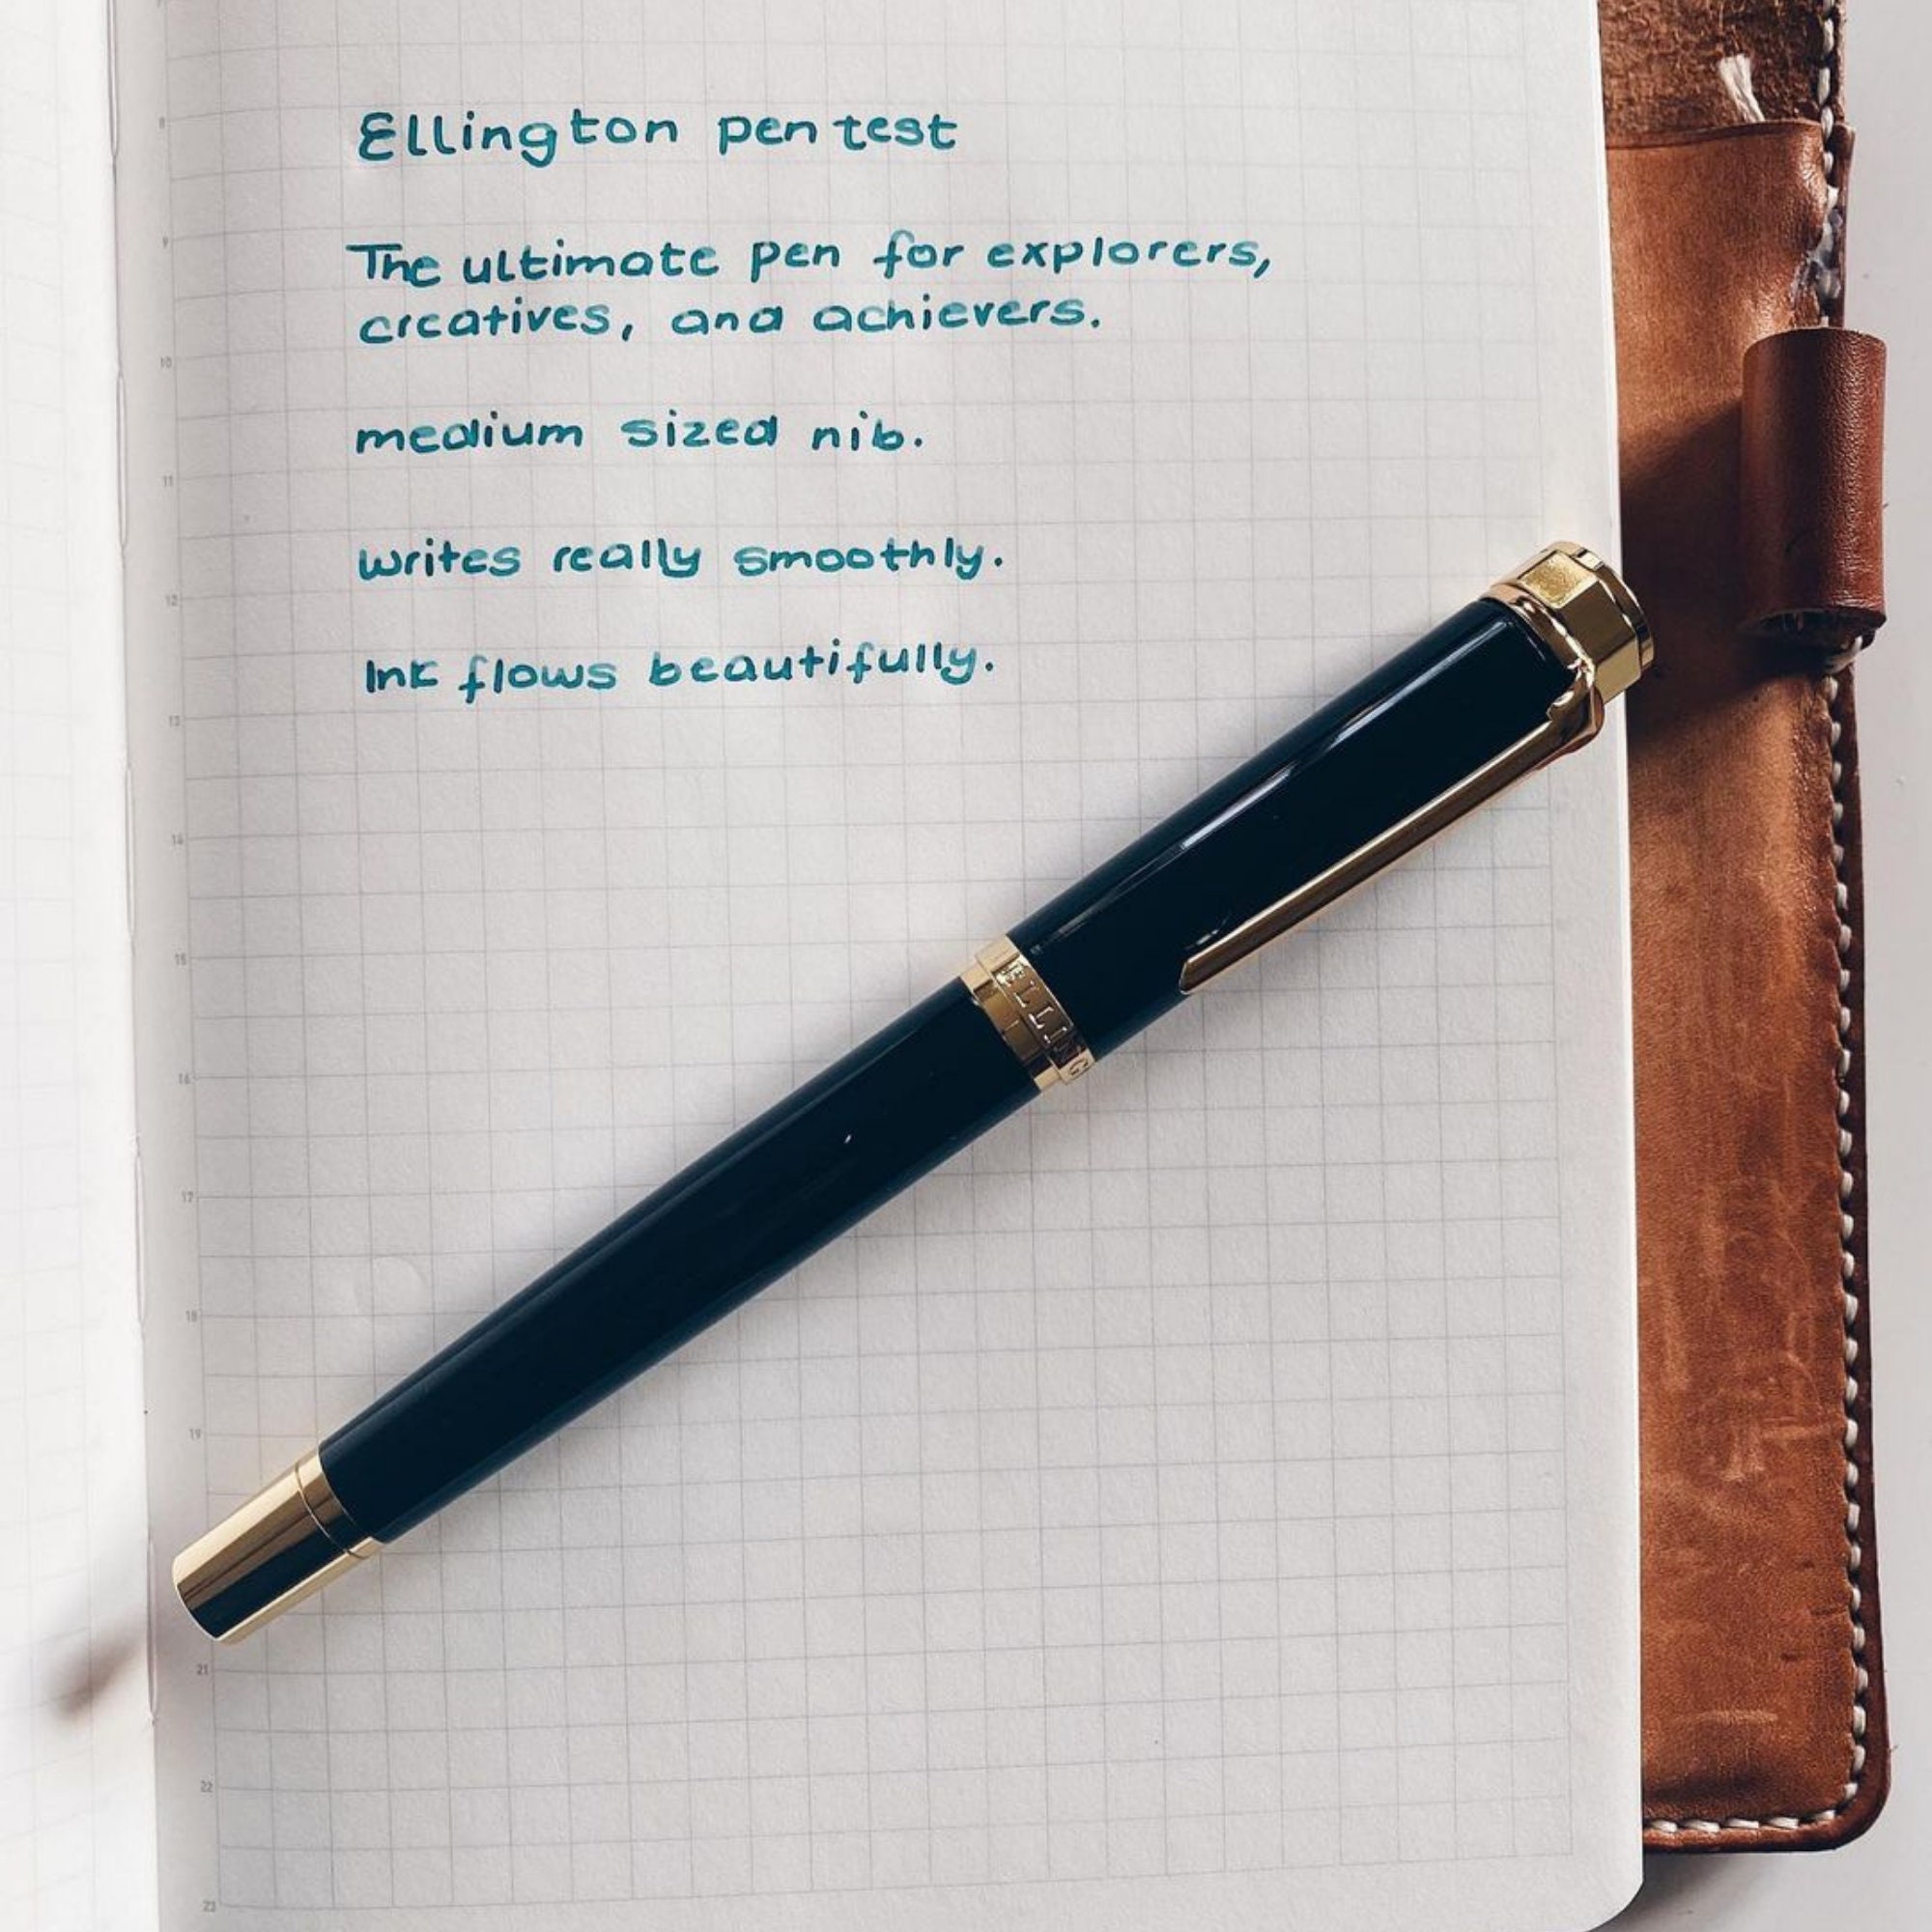 Ellington pen test
The ultimate pen for explorers,
creatives, and achievers.
medium sized nib.
writes really smoothly.
Ink flows beautifully.
ELLING
8
9
10
11
12
13
14
15
16
17
18
19
21
22
23